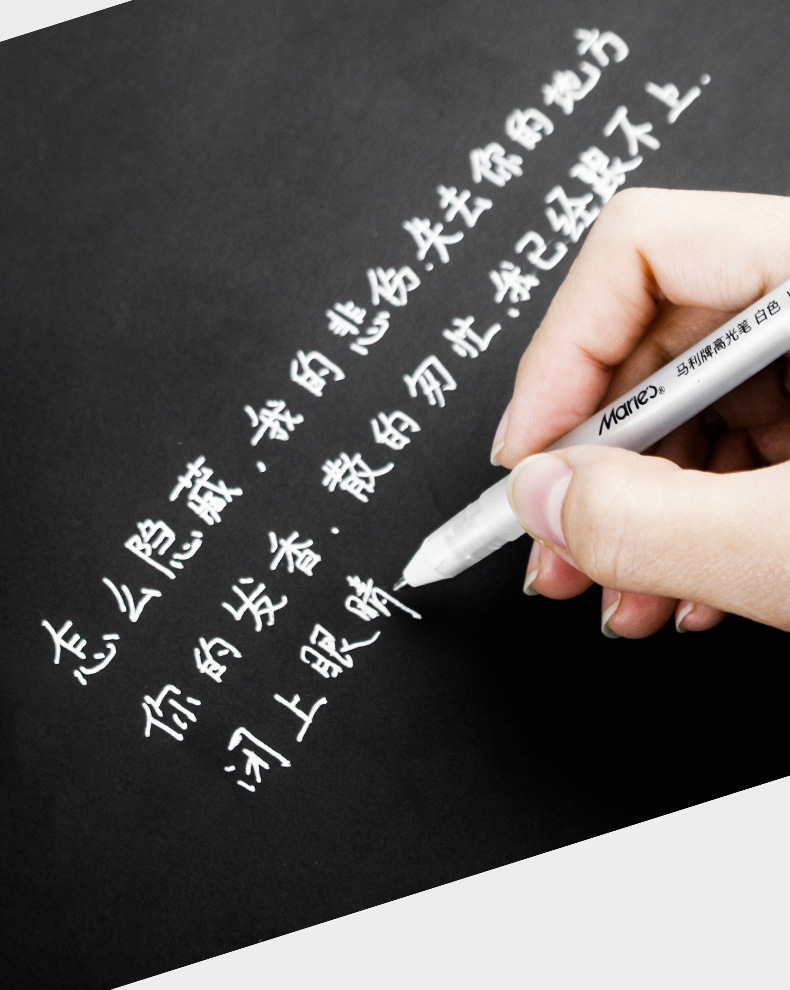 怎么隐藏,我的悲伤.失去你的地方
你的发香.散的匆忙.我已经跟不上.
闭上眼睛
Marie's®
马利牌高光笔 白色